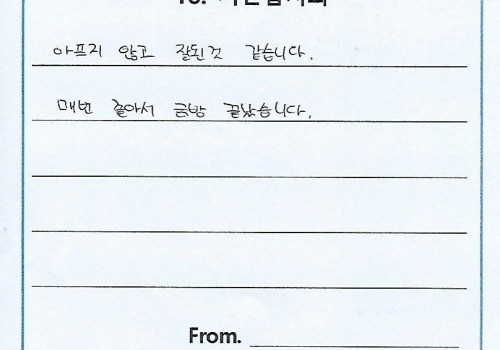 아프지 않고 잘된것 같습니다.
매번 졸아서 금방 끝났습니다.
From.